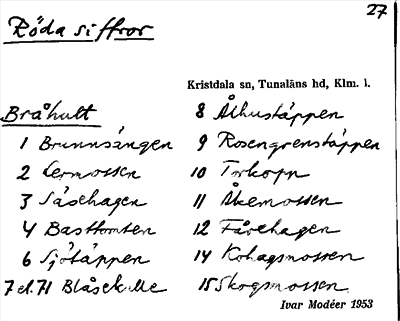 27
Röda siffror
Kristdala sn, Tunaläns hd, Klm. l.
Bråhult
1 Brunnsängen
2 Lermossen
3 Såsehagen
4 Basttomten
6 Sjötäppen
7 el. 71 Blåsekulle
8 Ålhustäppen
9 Rosengrenstäppen
10 Torkopp
11 Åkemossen
12 Fårehagen
14 Kohagsmossen
15 Skogsmossen
Ivar Modéer 1953